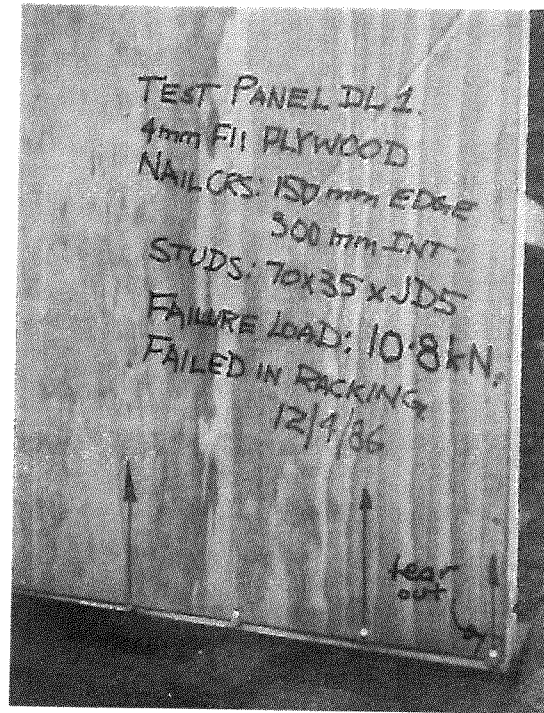 TEST PANEL DL 1.
4mm F11 PLYWOOD
NAIL CRS: 150 mm EDGE
300 mm INT.
STUDS: 70x35 x JD5
FAILURE LOAD: 10.8kN.
FAILED IN RACKING
12/4/86
tear
out